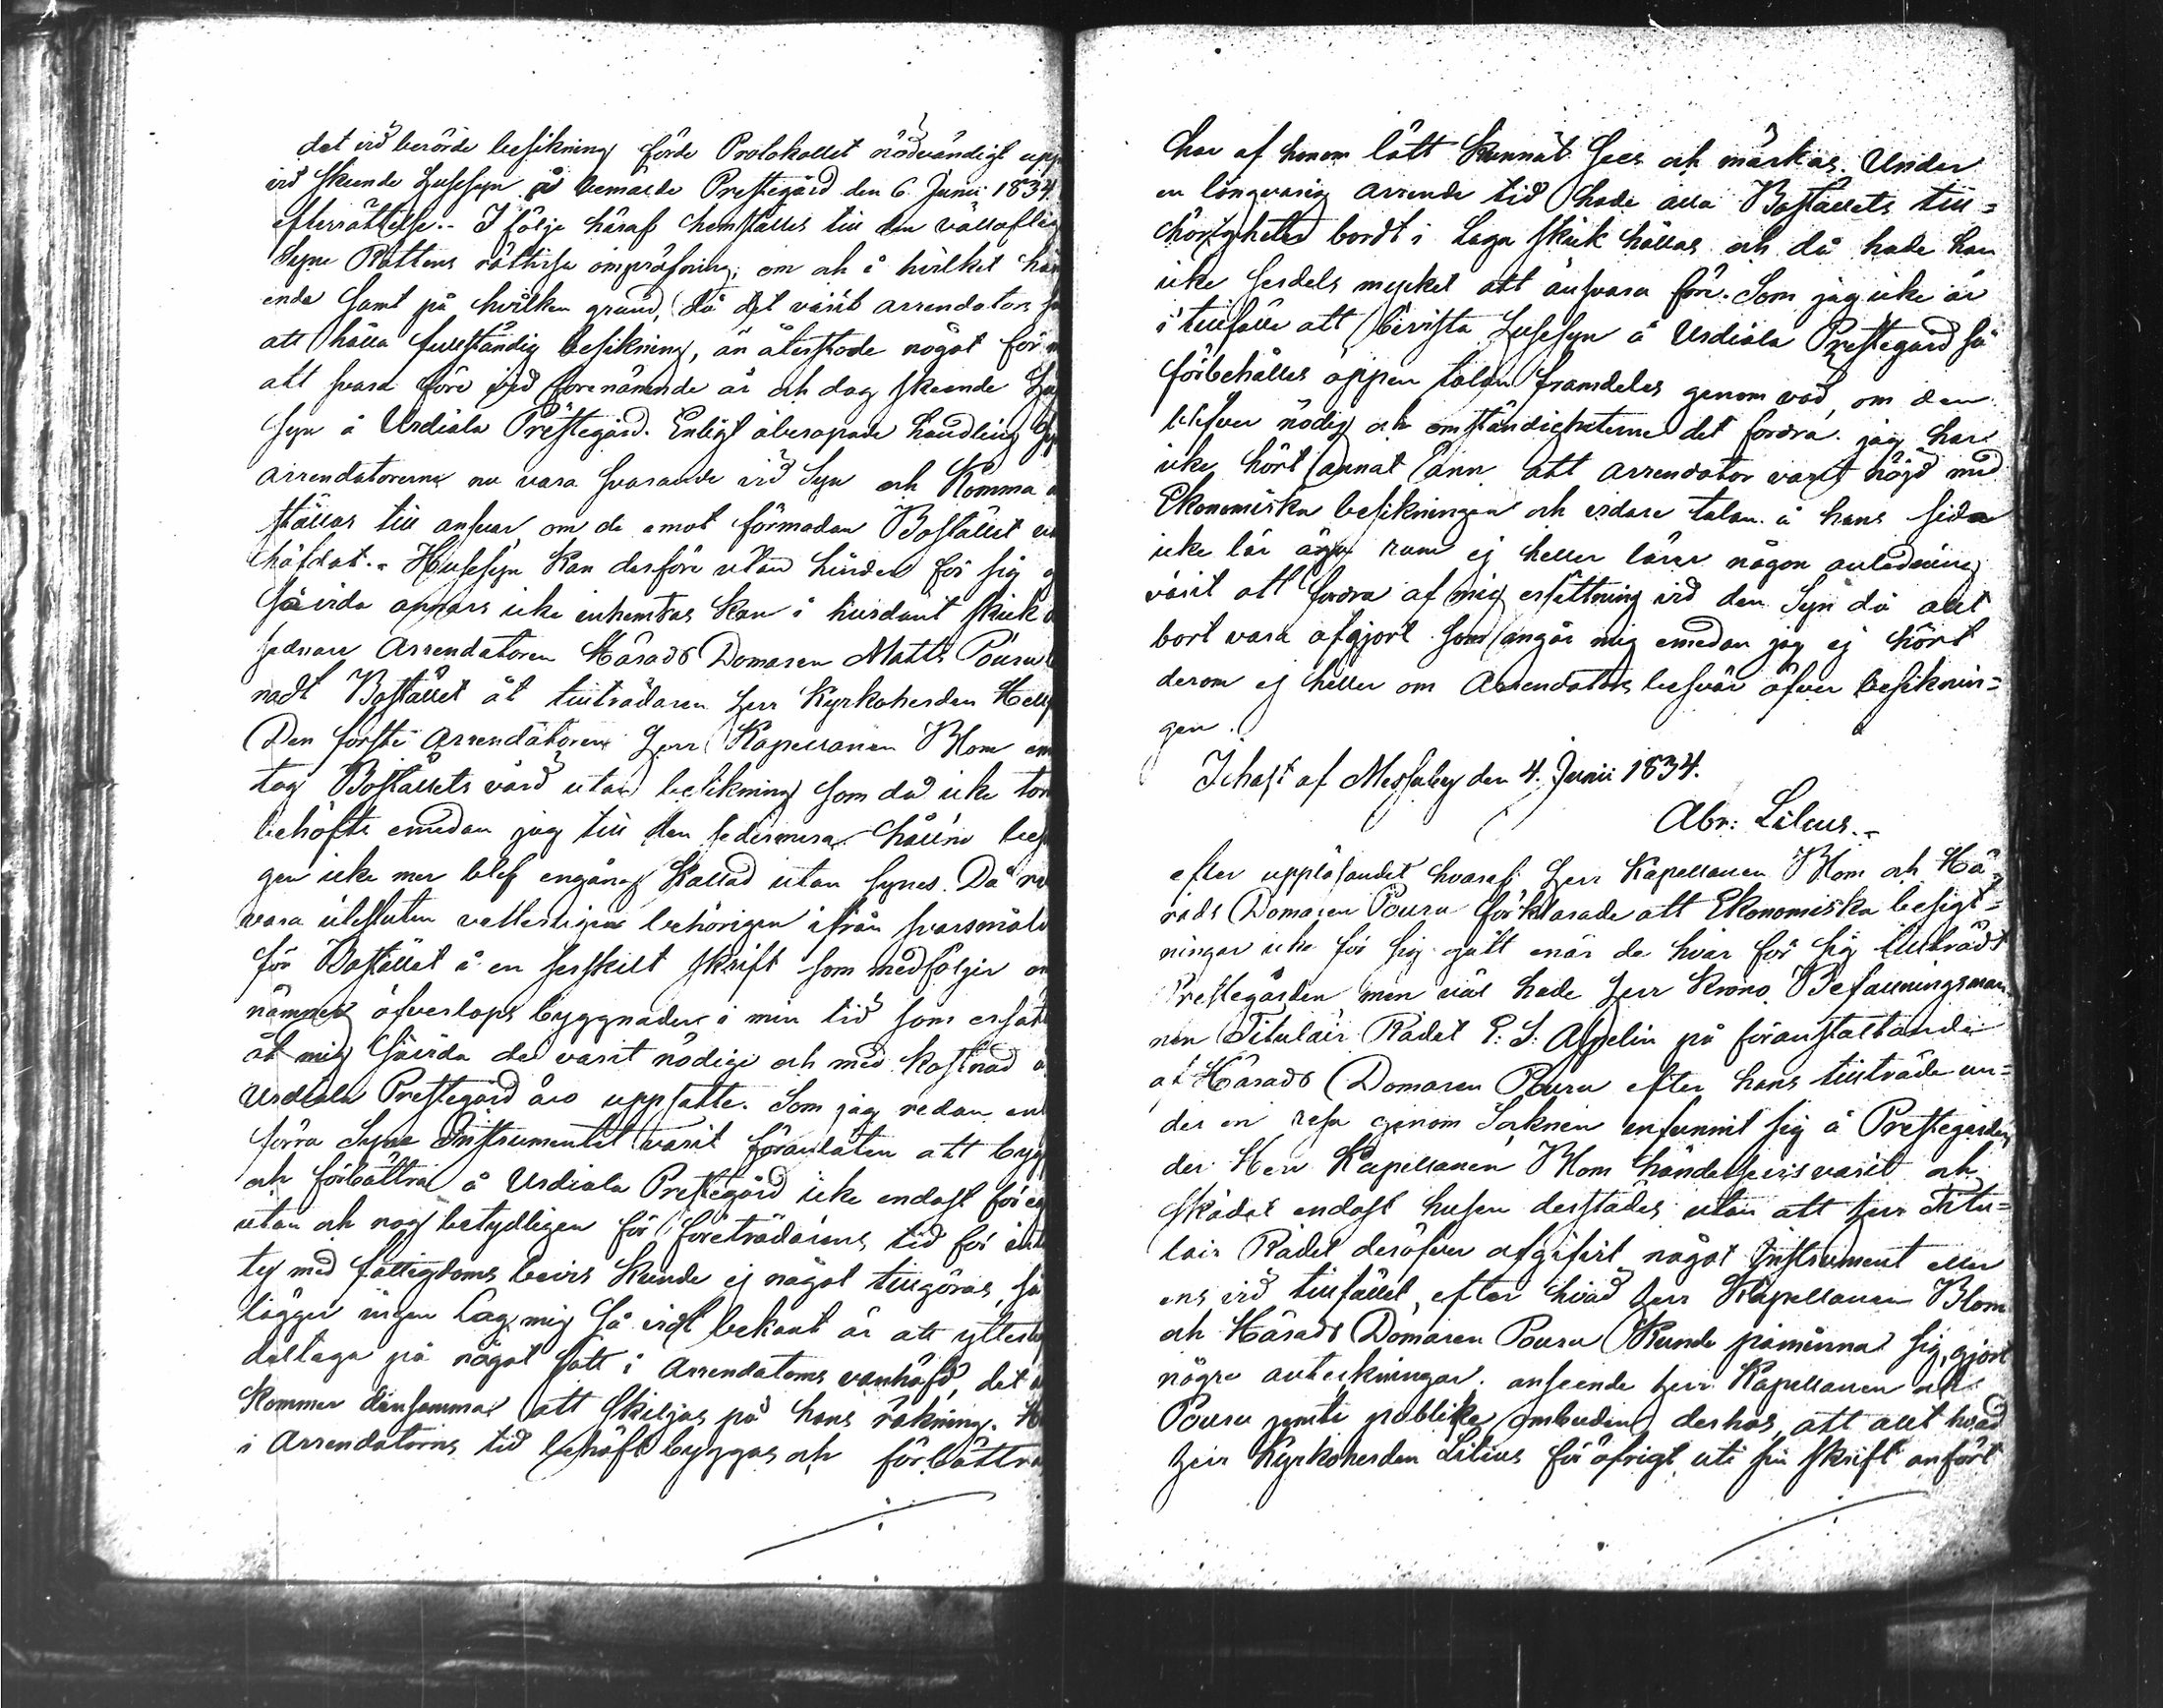 det vid berörde besikning förde Protokollet nödvändigt upp
vid skeende Husesyn å bemälde Prestegård den 6 Junii 1834
efterrättelse.- I följe häraf hemställes till den vällofliga
Syne Rättens rättvisa ompröfning, om och i hvilket hän
ende samt på hvilken grund, då det varit arrendators
att hålla fullständig besikning, än återstode något för
att svara före vid förenämnde år och dag skeende
syn å Urdiala Prestegård. Enligt åberopade handling
arrendatorerne nu vara svarande vid Syn och Komma
ställas till ansvar, om de emot förmodan Bostället
häfdat.- Husesyn kan derföre utan hinder för sig
såvida annars icke inhemtas kan i hurdant skick
sednare Arrendatoren Härads Domaren Matts Pouru
nadt Bostället åt tillträdaren Herr Kyrkoherden
Den förste Arrendatoren Herr Kapellanen Blom em
tog Boställets vård utan besikning som då icke
behöfts emedan jag till den sedermera hållne
gen icke mer blef engång kallad utan synes. Då
vara utesluten vetterligen behörigen ifrån svarsmål
för Bostället i en serskilt skrift som medföljer
nämner öfverlops byggnader i min tid som ersätt
åt mig såvida de varit nödige och med kostnad
Urdiala Prestegård äro uppsatte. Som jag redan
förra Syne Instrumentet varit föranlåten att bygg
och förbättra å Urdiala Prestegård icke endast för
utan och nog betydligen för företrädarens tid för
ty med fattigdoms bevis kunde ej något tillgöras, så
lägger ingen lag mig så vidt bekant är att ytterli
deltaga på något sätt i Arrendatorns vanhäfd, det
kommer densamma att skiljas på hans räkning.
i Arrendatorns tid behöft byggas och förbättra
har af honom lätt kunnat sees och märkas. Under
en långvarig arrende tid hade alla Boställets till=
hörigheter bordt i Laga skick hållas och då hade han
icke serdels mycket att ansvara före. Som jag icke är
i tillfälle att bevista Husesyn å Urdiala Prestegård så
förbehålles öppen talan framdeles genom vad, om den
blifver nödig och omständigheterne det fordra. jag har
icke hört annat änn att arrendator varit nöjd med
Ekonomiska besikningen och vidare talan å hans sida
icke lär äga rum ej heller lärer någon anledning
varit att fordra af mig ersättning vid den Syn då allt
bort vara afgjort som angår mig emedan jag ej hört
derom ej heller om Arrendators besvär öfver besiknin=
gen.
I hast af Messuby den 4. Junii 1834.
Abr: Lilius.-
efter uppläsandet hvaraf Herr Kapellanen Blom och Hä=
rads Domaren Pouru förklarade att Ekonomiska besigt=
ningar icke för sig gått enär de hvar för sig tillträdt
Prestegården men väl hade Herr Krono Befallningsman
nen Titulair Rådet P: S: Aspelin på föranstaltande
af Härads Domaren Pouru efter hans tillträde un=
der en resa genom Soknen infunnit sig å Prestegården
der Herr Kapellanen Blom händelsevis varit och
skådat endast husen derstädes utan att Herr Titu=
lair Rådet deröfver afgifvit något Instrument eller
ens vid tillfället, efter hvad Herr Kapellanen Blom
och Härads Domaren Pouru kunde påminna sig, gjort
några anteckningar. anseende Herr Kapellanen och
Pouru jemte publike ombuden derhos, att allt hvad
Herr Kyrkoherden Lilius för öfrigt uti sin skrift anfört